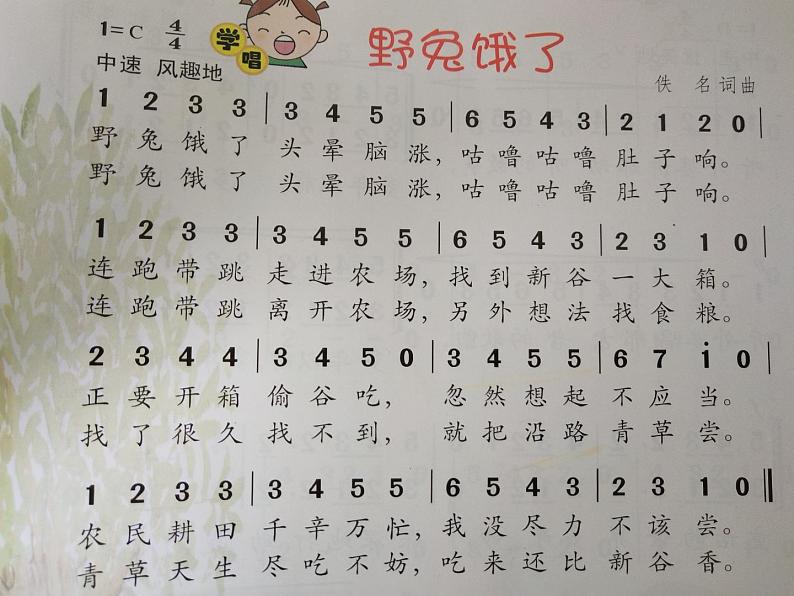 野兔饿了
1=C 4/4
学唱
中速 风趣地
佚 名 词曲
1 2 3 3 | 3 4 5 5 | 6 5 4 3 | 2 1 2 0 |
野 兔 饿 了 头 晕 脑 涨，咕 噜 咕 噜 肚 子 响。
野 兔 饿 了 头 晕 脑 涨，咕 噜 咕 噜 肚 子 响。
1 2 3 3 | 3 4 5 5 | 6 5 4 3 | 2 3 1 0 |
连 跑 带 跳 走 进 农 场，找 到 新 谷 一 大 箱。
连 跑 带 跳 离 开 农 场，另 外 想 法 找 食 粮。
2 3 4 4 | 3 4 5 0 | 3 4 5 5 | 6 7 i 0 |
正 要 开 箱 偷 谷 吃， 忽 然 想 起 不 应 当。
找 了 很 久 找 不 到， 就 把 沿 路 青 草 尝。
1 2 3 3 | 3 4 5 5 | 6 5 4 3 | 2 3 1 0 ‖
农 民 耕 田 千 辛 万 忙，我 没 尽 力 不 该 尝。
青 草 天 生 尽 吃 不 妨，吃 来 还 比 新 谷 香。